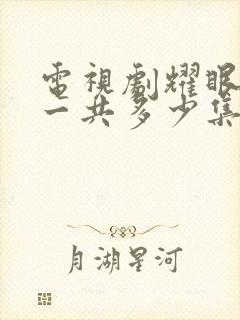 電視劇耀眼
一共多少集
月湖星河